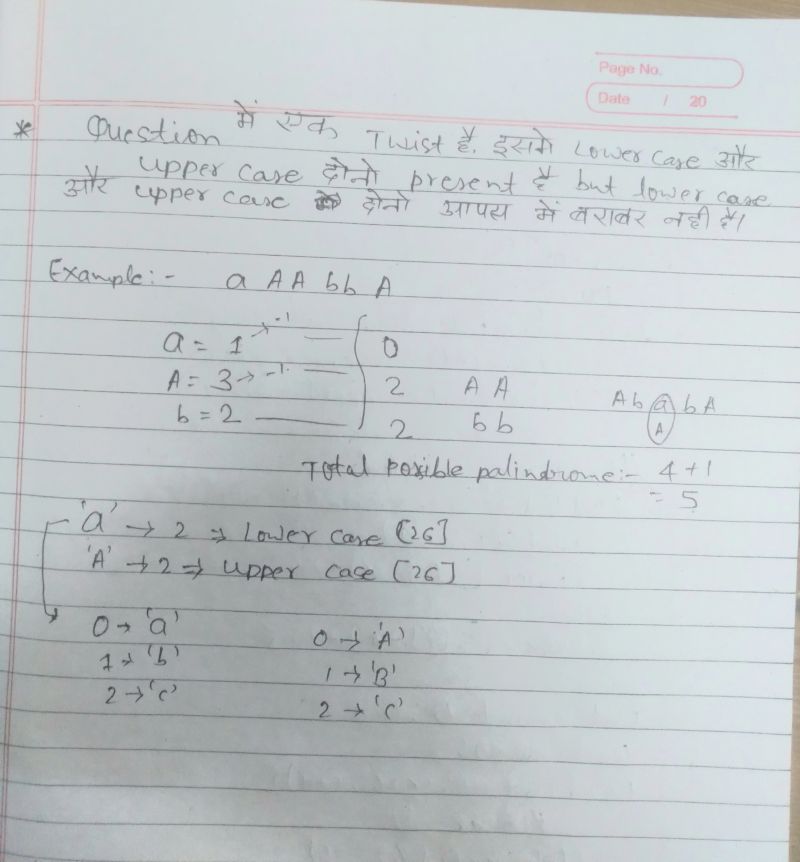 Page No.
Date / 20
* Question में एक Twist है. इसमे Lower case और
upper case दोनो present है but lower case
और upper case दोनो आपस में बराबर नही है।
Example:- a AA bb A
a = 1 → -1 — 0
A = 3 → -1 — 2 A A A b a b A
b = 2 — 2 b b A
Total posible palindrome:- 4 + 1
= 5
'a' → 2 ⇒ Lower case [26]
'A' → 2 ⇒ upper case [26]
0 → 'a' 0 → 'A'
1 → 'b' 1 → 'B'
2 → 'c' 2 → 'C'